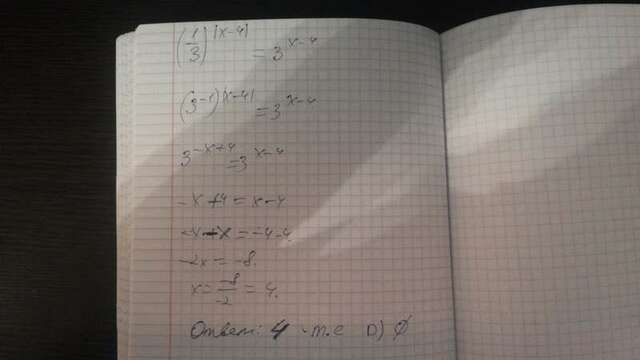 (1/3)^|x-4| = 3^x-4
(3^-1)^|x-4| = 3^x-4
3^-x+4 = 3^x-4
-x+4 = x-4
-x-x = -4-4
-2x = -8.
x = -8/-2 = 4.
Ответ: 4 т.е D) ∅